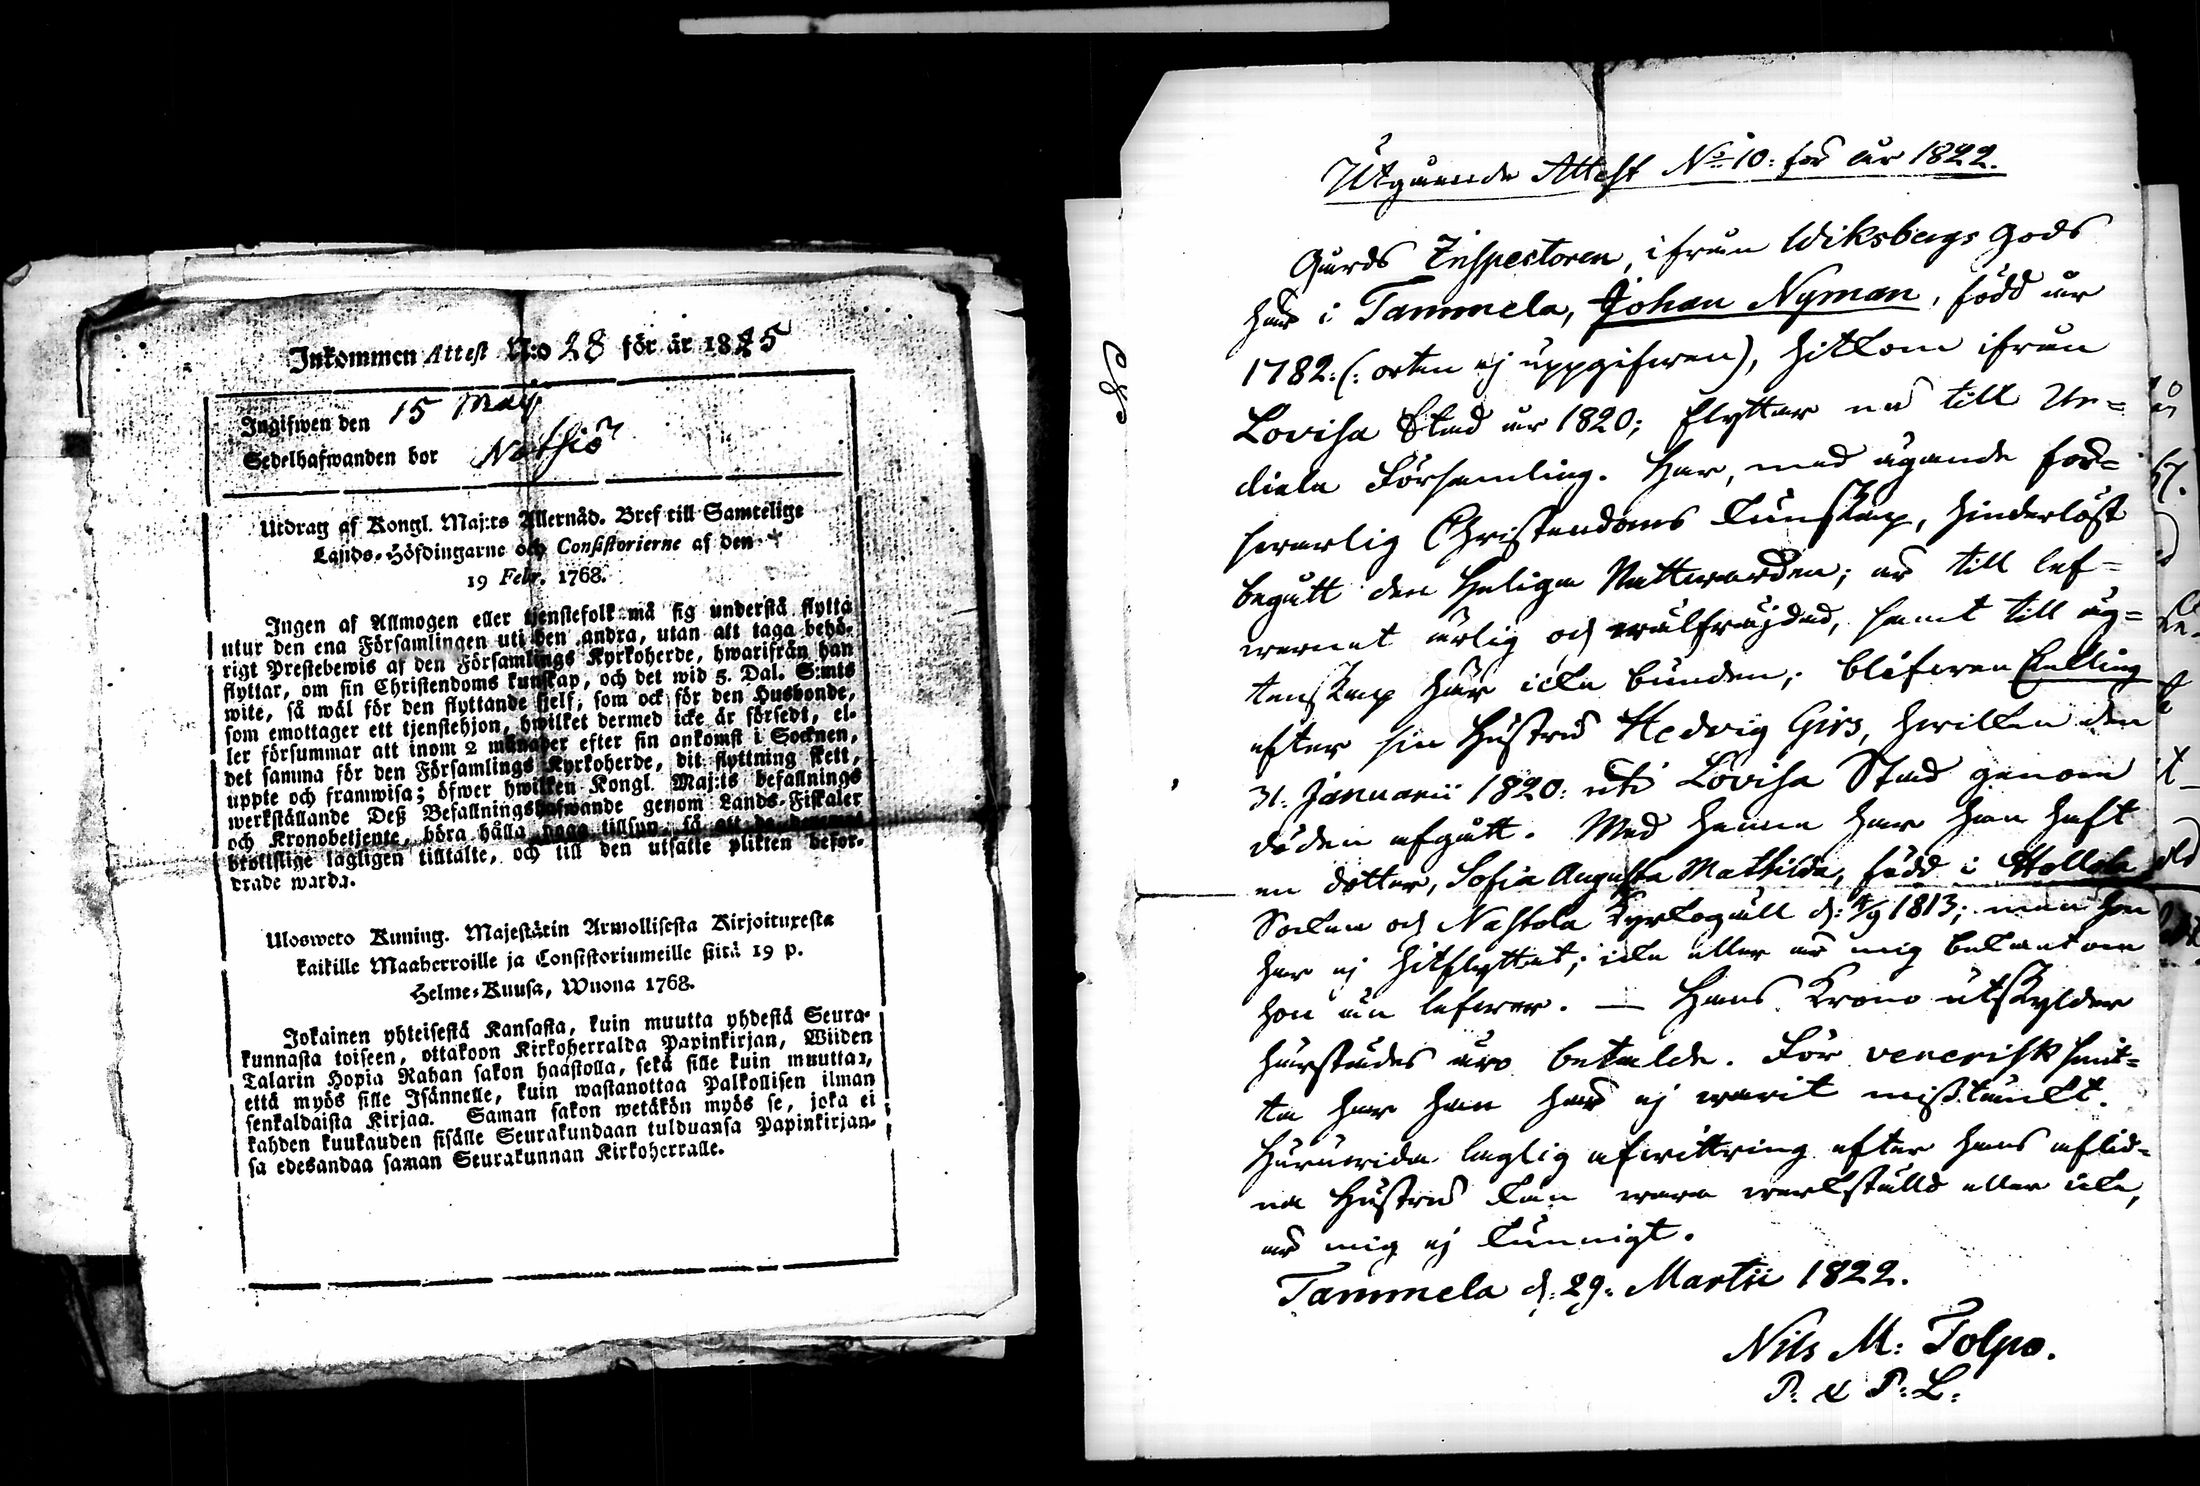 Inkommen Attest N:o 28 för år 1825
Ingifwen den 15 Maij
Sedelhafwanden bor
Utdrag af Kongl. Maj:ts Allernåd. Bref till Samtelige
Lands-Höfdingarne och Consistorierne af den
19 Febr. 1768.
Ingen af Allmogen eller tjenstefolk må sig understå flytta
utur den ena Församlingen uti den andra, utan att taga behö-
rigt Prestebewis af den Församlings Kyrkoherde, hwarifrån han
flyttar, om sin Christendoms kunskap, och det wid 5. Dal. S:mts
wite, så wäl för den flyttande sjelf, som ock för den Husbonde,
som emottager ett tjenstehjon, hwilket dermed icke är försedt, el-
ler försummar att inom 2 månader efter sin ankomst i Socknen,
det samma för den Församlings Kyrkoherde, dit flyttning skett,
uppte och framwisa; öfwer hwilken Kongl. Maj:ts befallnings
werkställande Deß Befallningshafwande genom Lands-Fiskaler
och Kronobetjente, böra hålla noga tillsyn, så att de
brottslige lagligen tilltalte, och till den utsatte plikten befor-
drade warda.
Uloswcto Kuning. Majestätin Armollisesta Kirjoituxesta
kaikille Maaherroille ja Consistoriumeille siitä 19 p.
Helme-Kuusa, Wuona 1768.
Jokainen yhteisestä Kansasta, kuin muutta yhdestä Seura-
kunnasta toiseen, ottakoon Kirkoherralda Papinkirjan, Wiiden
Talarin Hopia Rahan sakon haastolla, sekä sille kuin muuttaa,
että myös sille Isännelle, kuin wastanottaa Palkollisen ilman
senkaldaista Kirjaa. Saman sakon wetäkön myös se, joka ei
kahden kuukauden sisälle Seurakundaan tulduansa Papinkirjan-
sa edesandaa saman Seurakunnan Kirkoherralle.
Utgående Attest No 10: för år 1822.
Gårds Inspectoren, ifrån Wiksbergs Gods
här i Tammela, Johan Nyman, född år
1782. (: orten ej uppgifwen), hitkom ifrån
Lovisa Stad år 1820; flyttar nu till Ur-
diala Församling. Har, med ägande för-
swarlig Christendoms kunskap, hinderlöst
begått den Heliga Nattwarden; är till lef-
wernet ärlig och wälfräjdad, samt till äg-
tenskap här icke bunden; blifwen Enkling
efter sin Hustru Hedvig Girs, hwilken den
31. Januarii 1820. uti Lovisa Stad genom
döden afgått. Med henne har han haft
en dotter, Sofia Augusta Mathilda, född i Hollola
Socken och Nastola Kyrkogäll d: 4/9 1813; men hon
har ej hitflyttat; icke eller är mig bekant om
hon än lefwer. — Hans Krono utskylder
härstädes äro betalde. För venerisk smit-
ta har han här ej warit mißtänkt.
Huruwida laglig afwittring efter hans aflid-
na Hustru kan wara werkställd eller icke,
är mig ej kunnigt.
Tammela d: 29. Martii 1822.
Nils M: Tolpo.
P. & P: L: